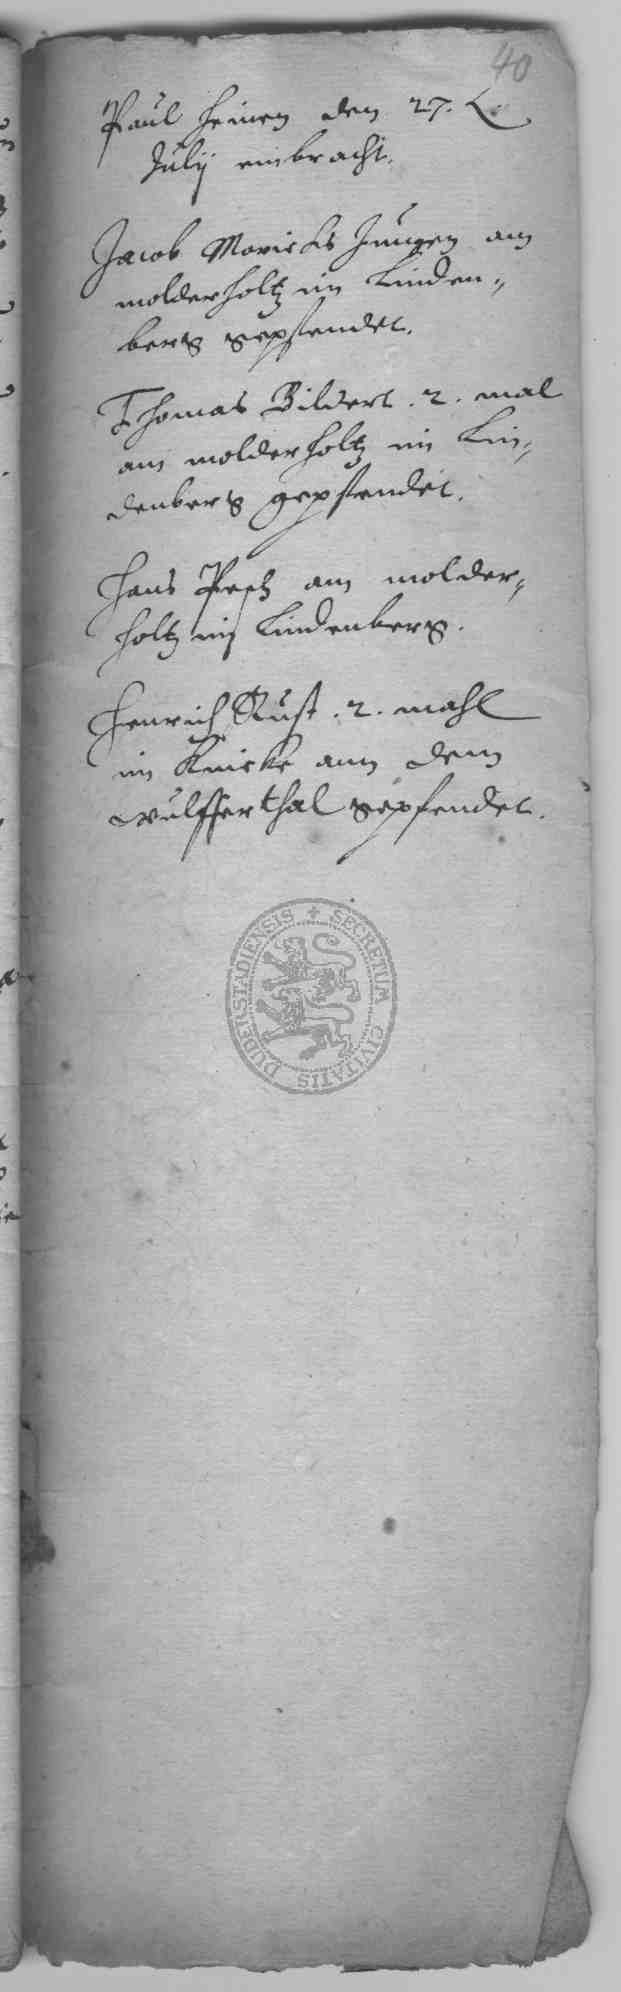 40
Paul Heinen den 27.
Julij einbracht.
Jacob Moricks Jungen am
molderholtz im Linden„
berg gepfendet.
Thomas Bildert . 2 . mal
am molderholtz im Lin„
denberg gepfendet.
Hans am molder„
holtz im Lindenberg.
Henrich Rust . 2 . mahl
im Knicke ann dem
wulfferthal gepfendet.
SECRETUM CIVITATIS DUDERSTADIENSIS